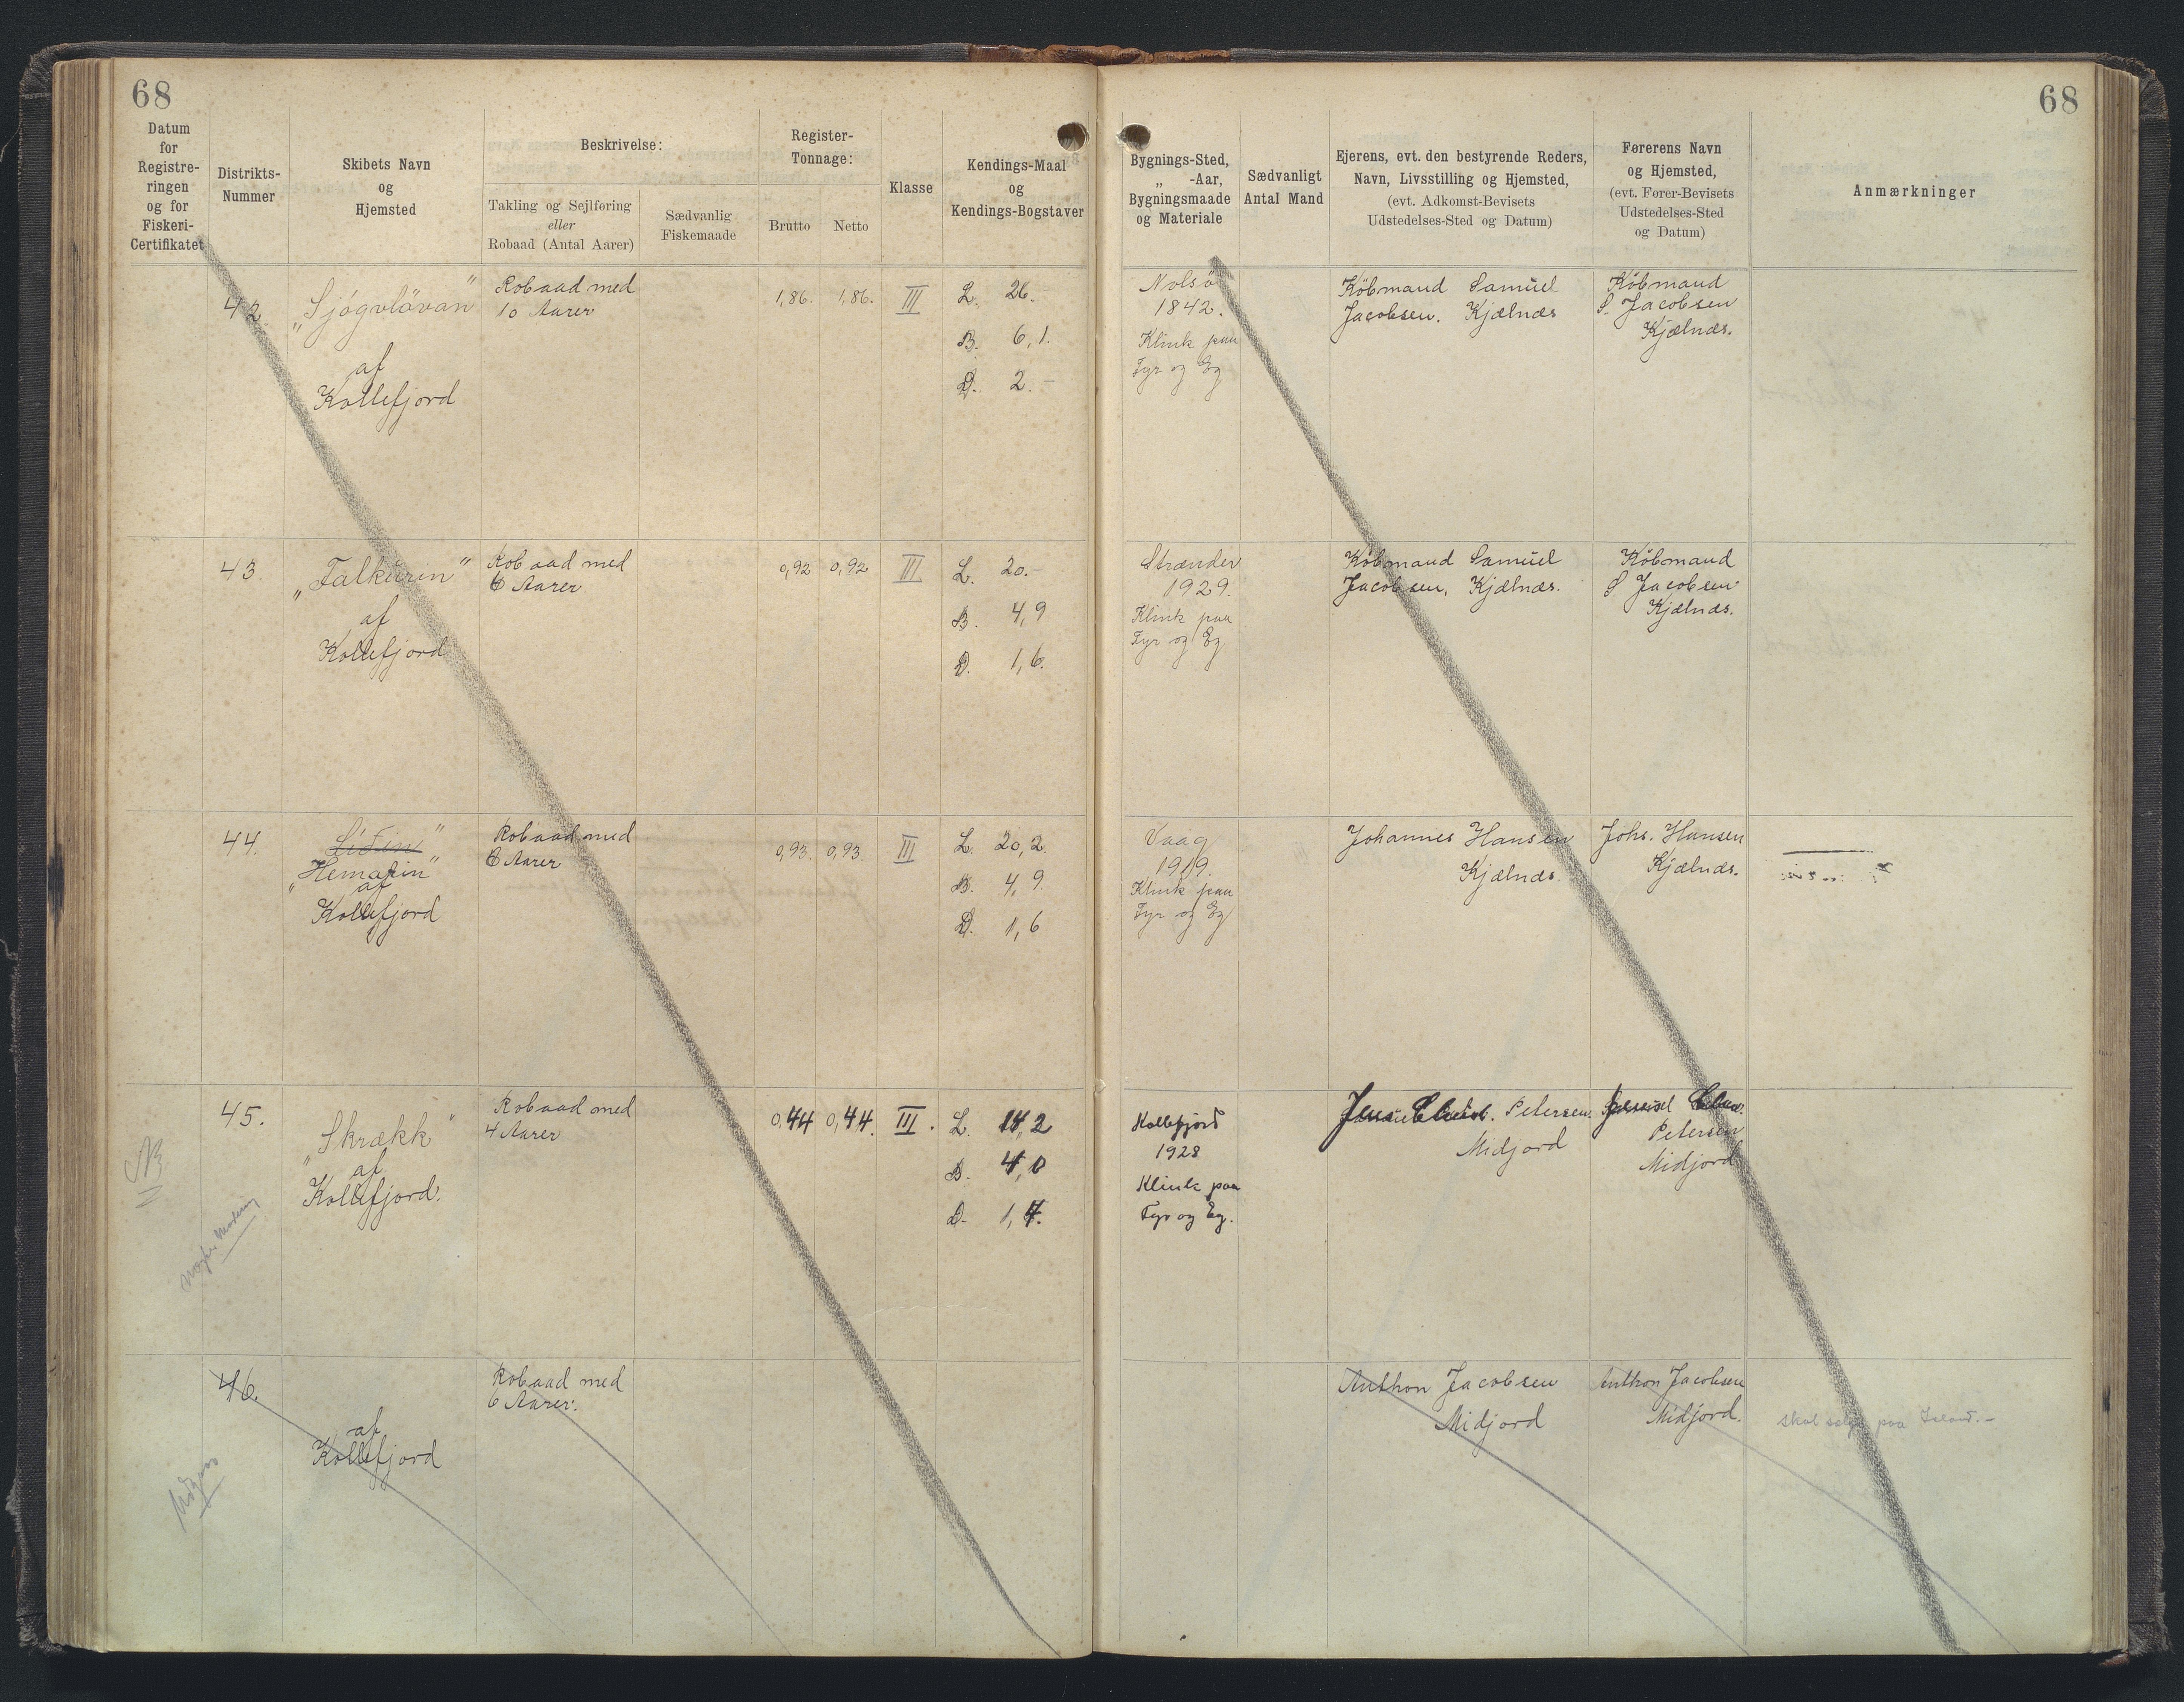 68
68
Datum
for
Registre-
ringen
og for
Fiskeri-
Certifikatet
Distrikts-
Nummer
Skibets Navn
og
Hjemsted
Beskrivelse:
Takling og Sejlføring
eller
Robaad (Antal Aarer)
Sædvanlig
Fiskemaade
Register-
Tonnage:
Brutto Netto
Klasse
Kendings-Maal
og
Kendings-Bogstaver
Bygnings-Sted,
„ -Aar,
Bygningsmaade
og Materiale
Sædvanligt
Antal Mand
Ejerens, evt. den bestyrende Reders,
Navn, Livsstilling og Hjemsted,
(evt. Adkomst-Bevisets
Udstedelses-Sted og Datum)
Førerens Navn
og Hjemsted,
(evt. Fører-Bevisets
Udstedelses-Sted
og Datum)
Anmærkninger
42
„Sjógvlövan"
af
Kollefjord
Robaad med
10 Aarer
1,86. 1,86.
III
L. 26.-
B. 6,1.
D. 2.-
Nolsö
1842.
Klink paa
Fyr og Eg
Købmand Samuel
Jacobsen. Kjælnæs
Købmand
S. Jacobsen
Kjælnæs.
43.
„Falkurin"
af
Kollefjord
Robaad med
6 Aarer
0,92 0,92
III
L. 20.-
B. 4,9
D. 1,6.
Strænder
1929.
Klink paa
Fyr og Eg
Købmand Samuel
Jacobsen, Kjælnæs.
Købmand
S. Jacobsen
Kjælnæs.
44.
„Hemafin"
af
Kollefjord
Robaad med
6 Aarer
0,93. 0,93
III
L. 20,2.
B. 4,9.
D. 1,6
Vaag
1919.
Klink paa
Fyr og Eg
Johannes Hansen
Kjælnæs.
Johs. Hansen
Kjælnæs.
45.
„Skrækk"
af
Kollefjord.
Robaad med
4 Aarer
0,44 0,44.
III.
L. 14,2
B. 4,0
D. 1,4.
Kollefjord
1928
Klink paa
Fyr og Eg.
Petersen.
Midjord
Petersen
Midjord
NB
46.
af
Kollefjord
Robaad med
6 Aarer.
Anthon Jacobsen
Midjord
Anthon Jacobsen
Midjord.
Skal sælges paa Island.-
Udgaar